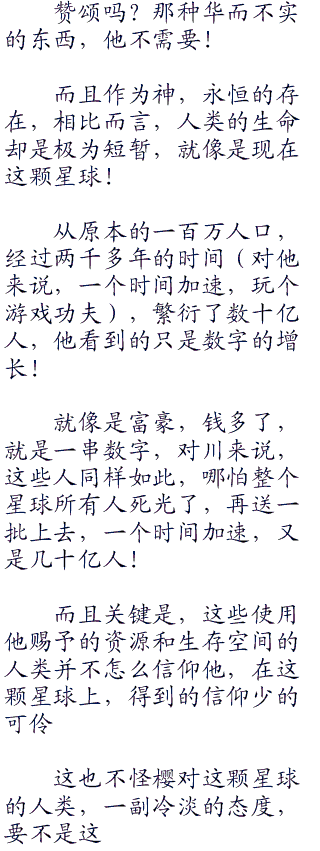 赞颂吗？那种华而不实
的东西，他不需要！
而且作为神，永恒的存
在，相比而言，人类的生命
却是极为短暂，就像是现在
这颗星球！
从原本的一百万人口，
经过两千多年的时间（对他
来说，一个时间加速，玩个
游戏功夫），繁衍了数十亿
人，他看到的只是数字的增
长！
就像是富豪，钱多了，
就是一串数字，对川来说，
这些人同样如此，哪怕整个
星球所有人死光了，再送一
批上去，一个时间加速，又
是几十亿人！
而且关键是，这些使用
他赐予的资源和生存空间的
人类并不怎么信仰他，在这
颗星球上，得到的信仰少的
可伶
这也不怪樱对这颗星球
的人类，一副冷淡的态度，
要不是这